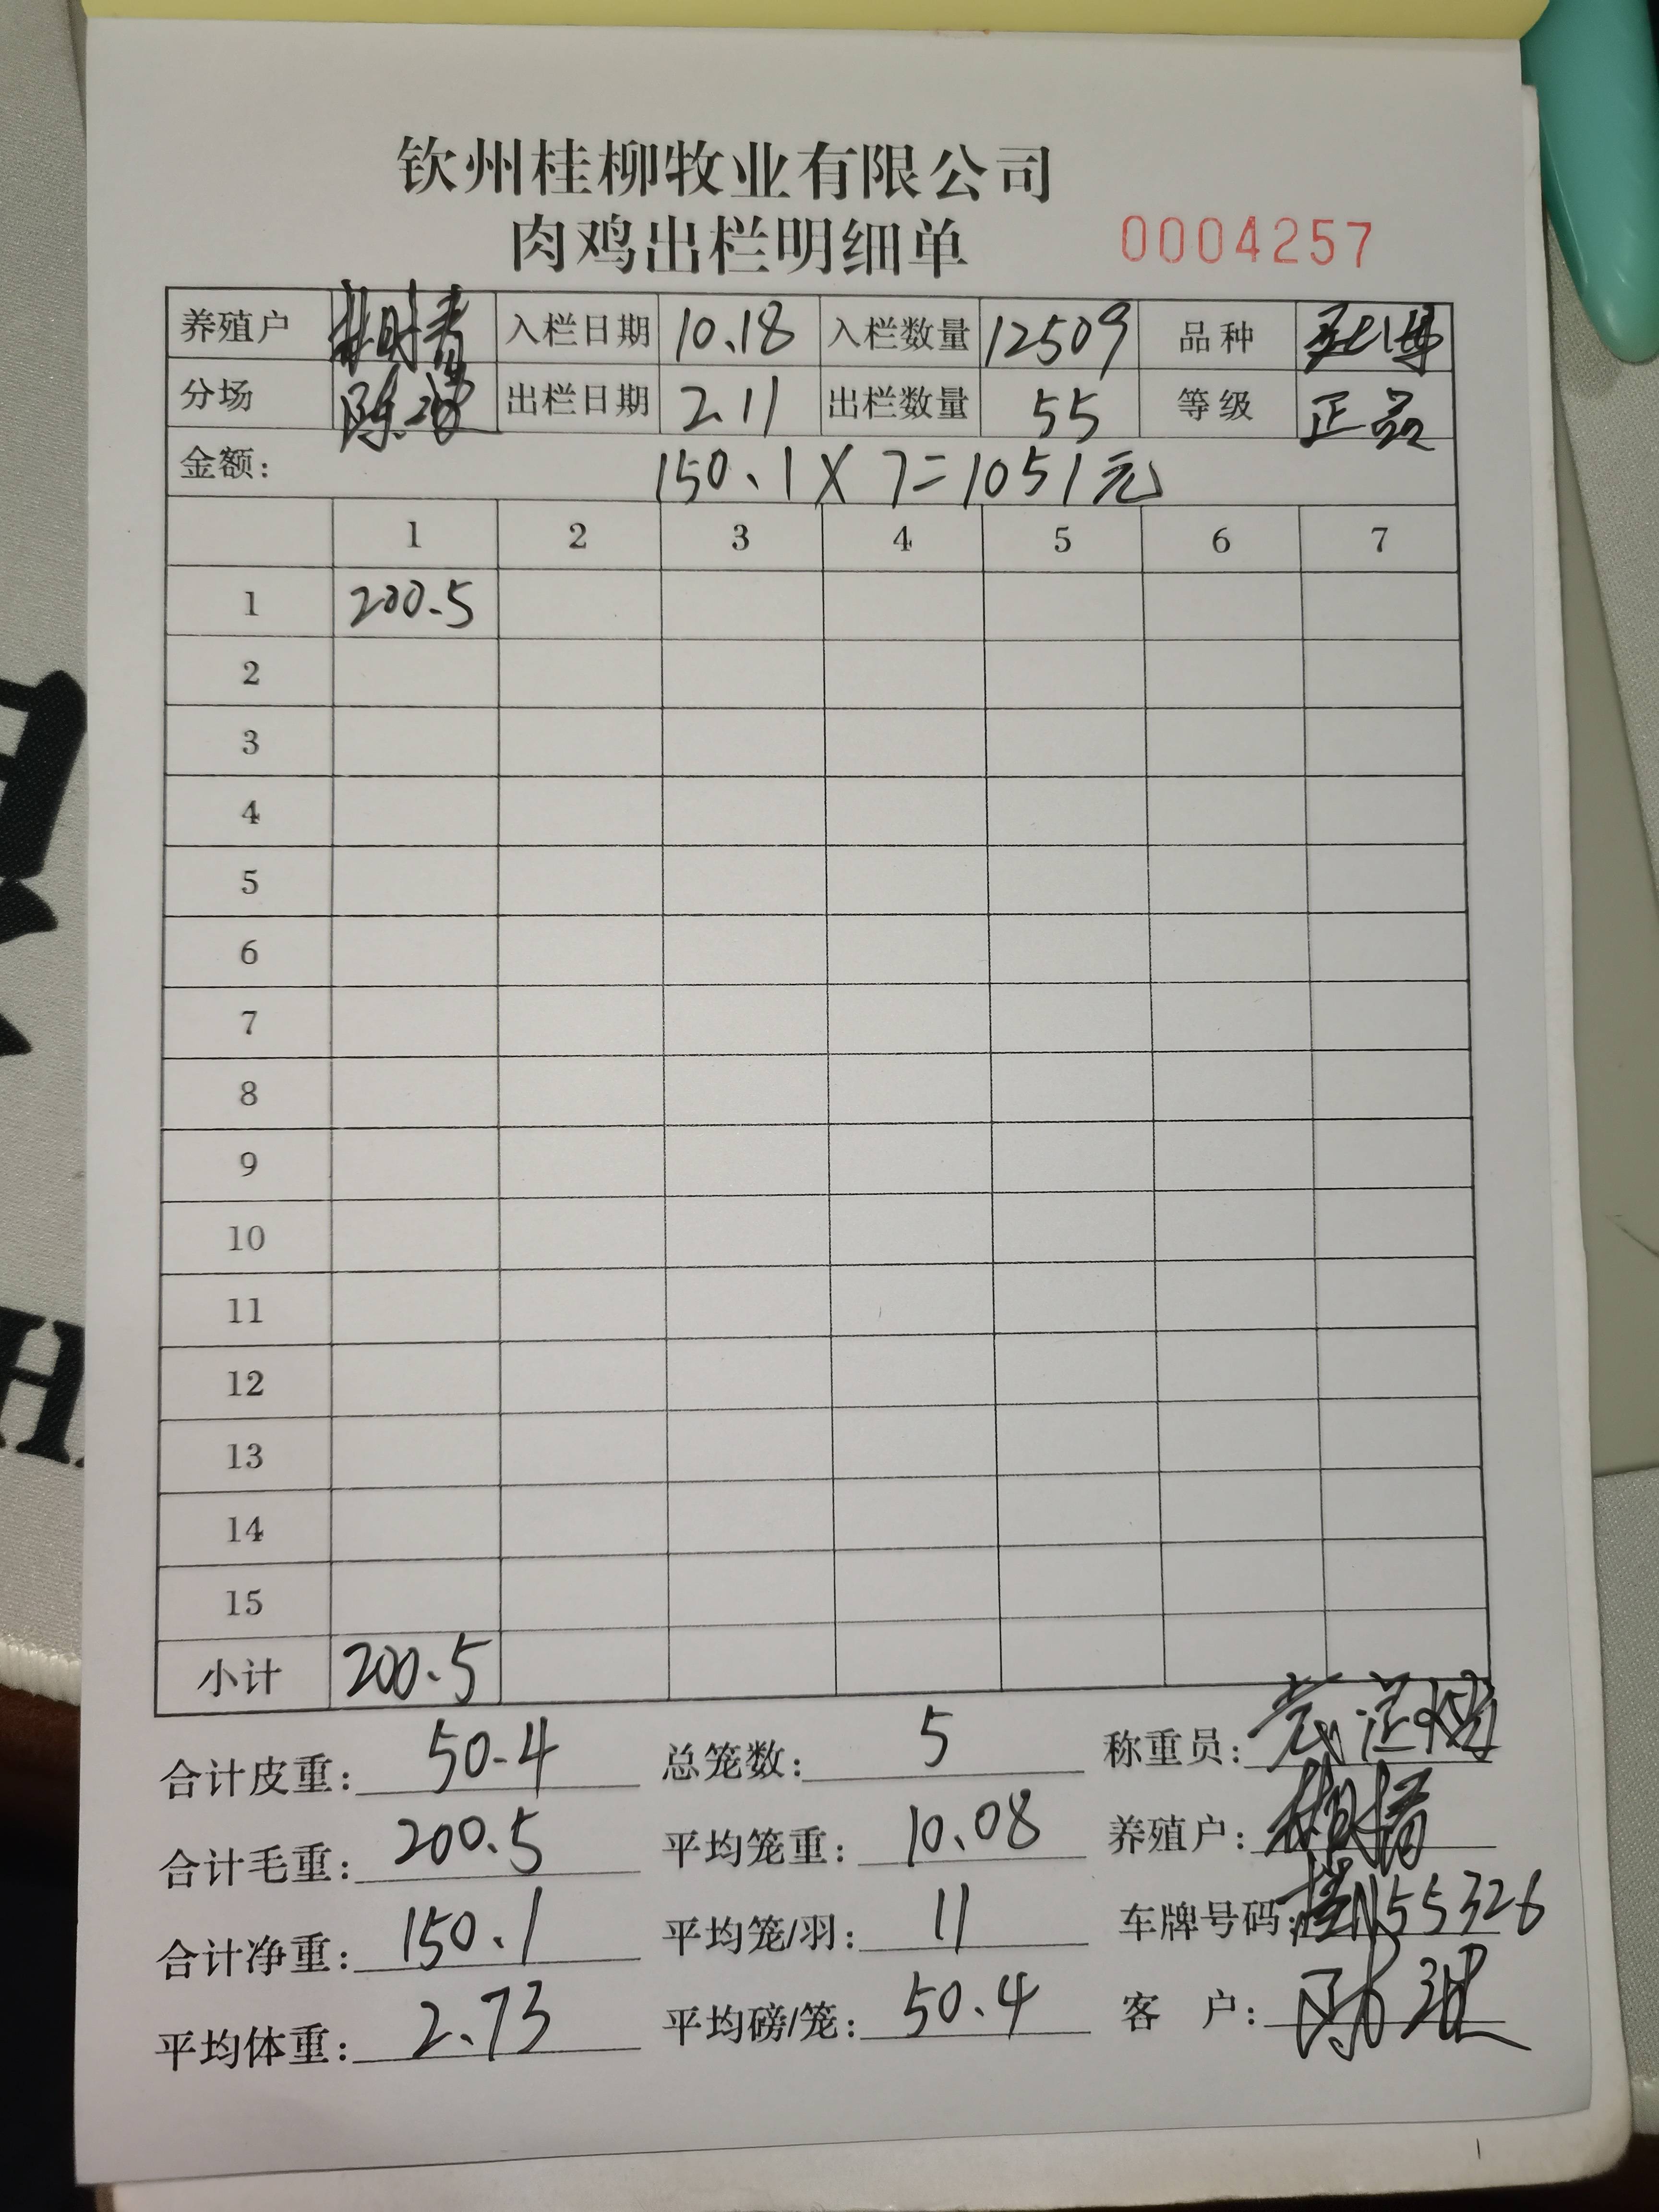 钦州桂柳牧业有限公司
肉鸡出栏明细单 0004257
养殖户 入栏日期 10.18 入栏数量 12509 品种
分场 陈 出栏日期 2.11 出栏数量 55 等级 正品
金额: 150.1×7=1051元
1 2 3 4 5 6 7
1 200.5
2
3
4
5
6
7
8
9
10
11
12
13
14
15
小计 200.5
合计皮重: 50.4 总笼数: 5 称重员:
合计毛重: 200.5 平均笼重: 10.08 养殖户:
合计净重: 150.1 平均笼/羽: 11 车牌号码: 桂N55326
平均体重: 2.73 平均磅/笼: 50.4 客户: 陈